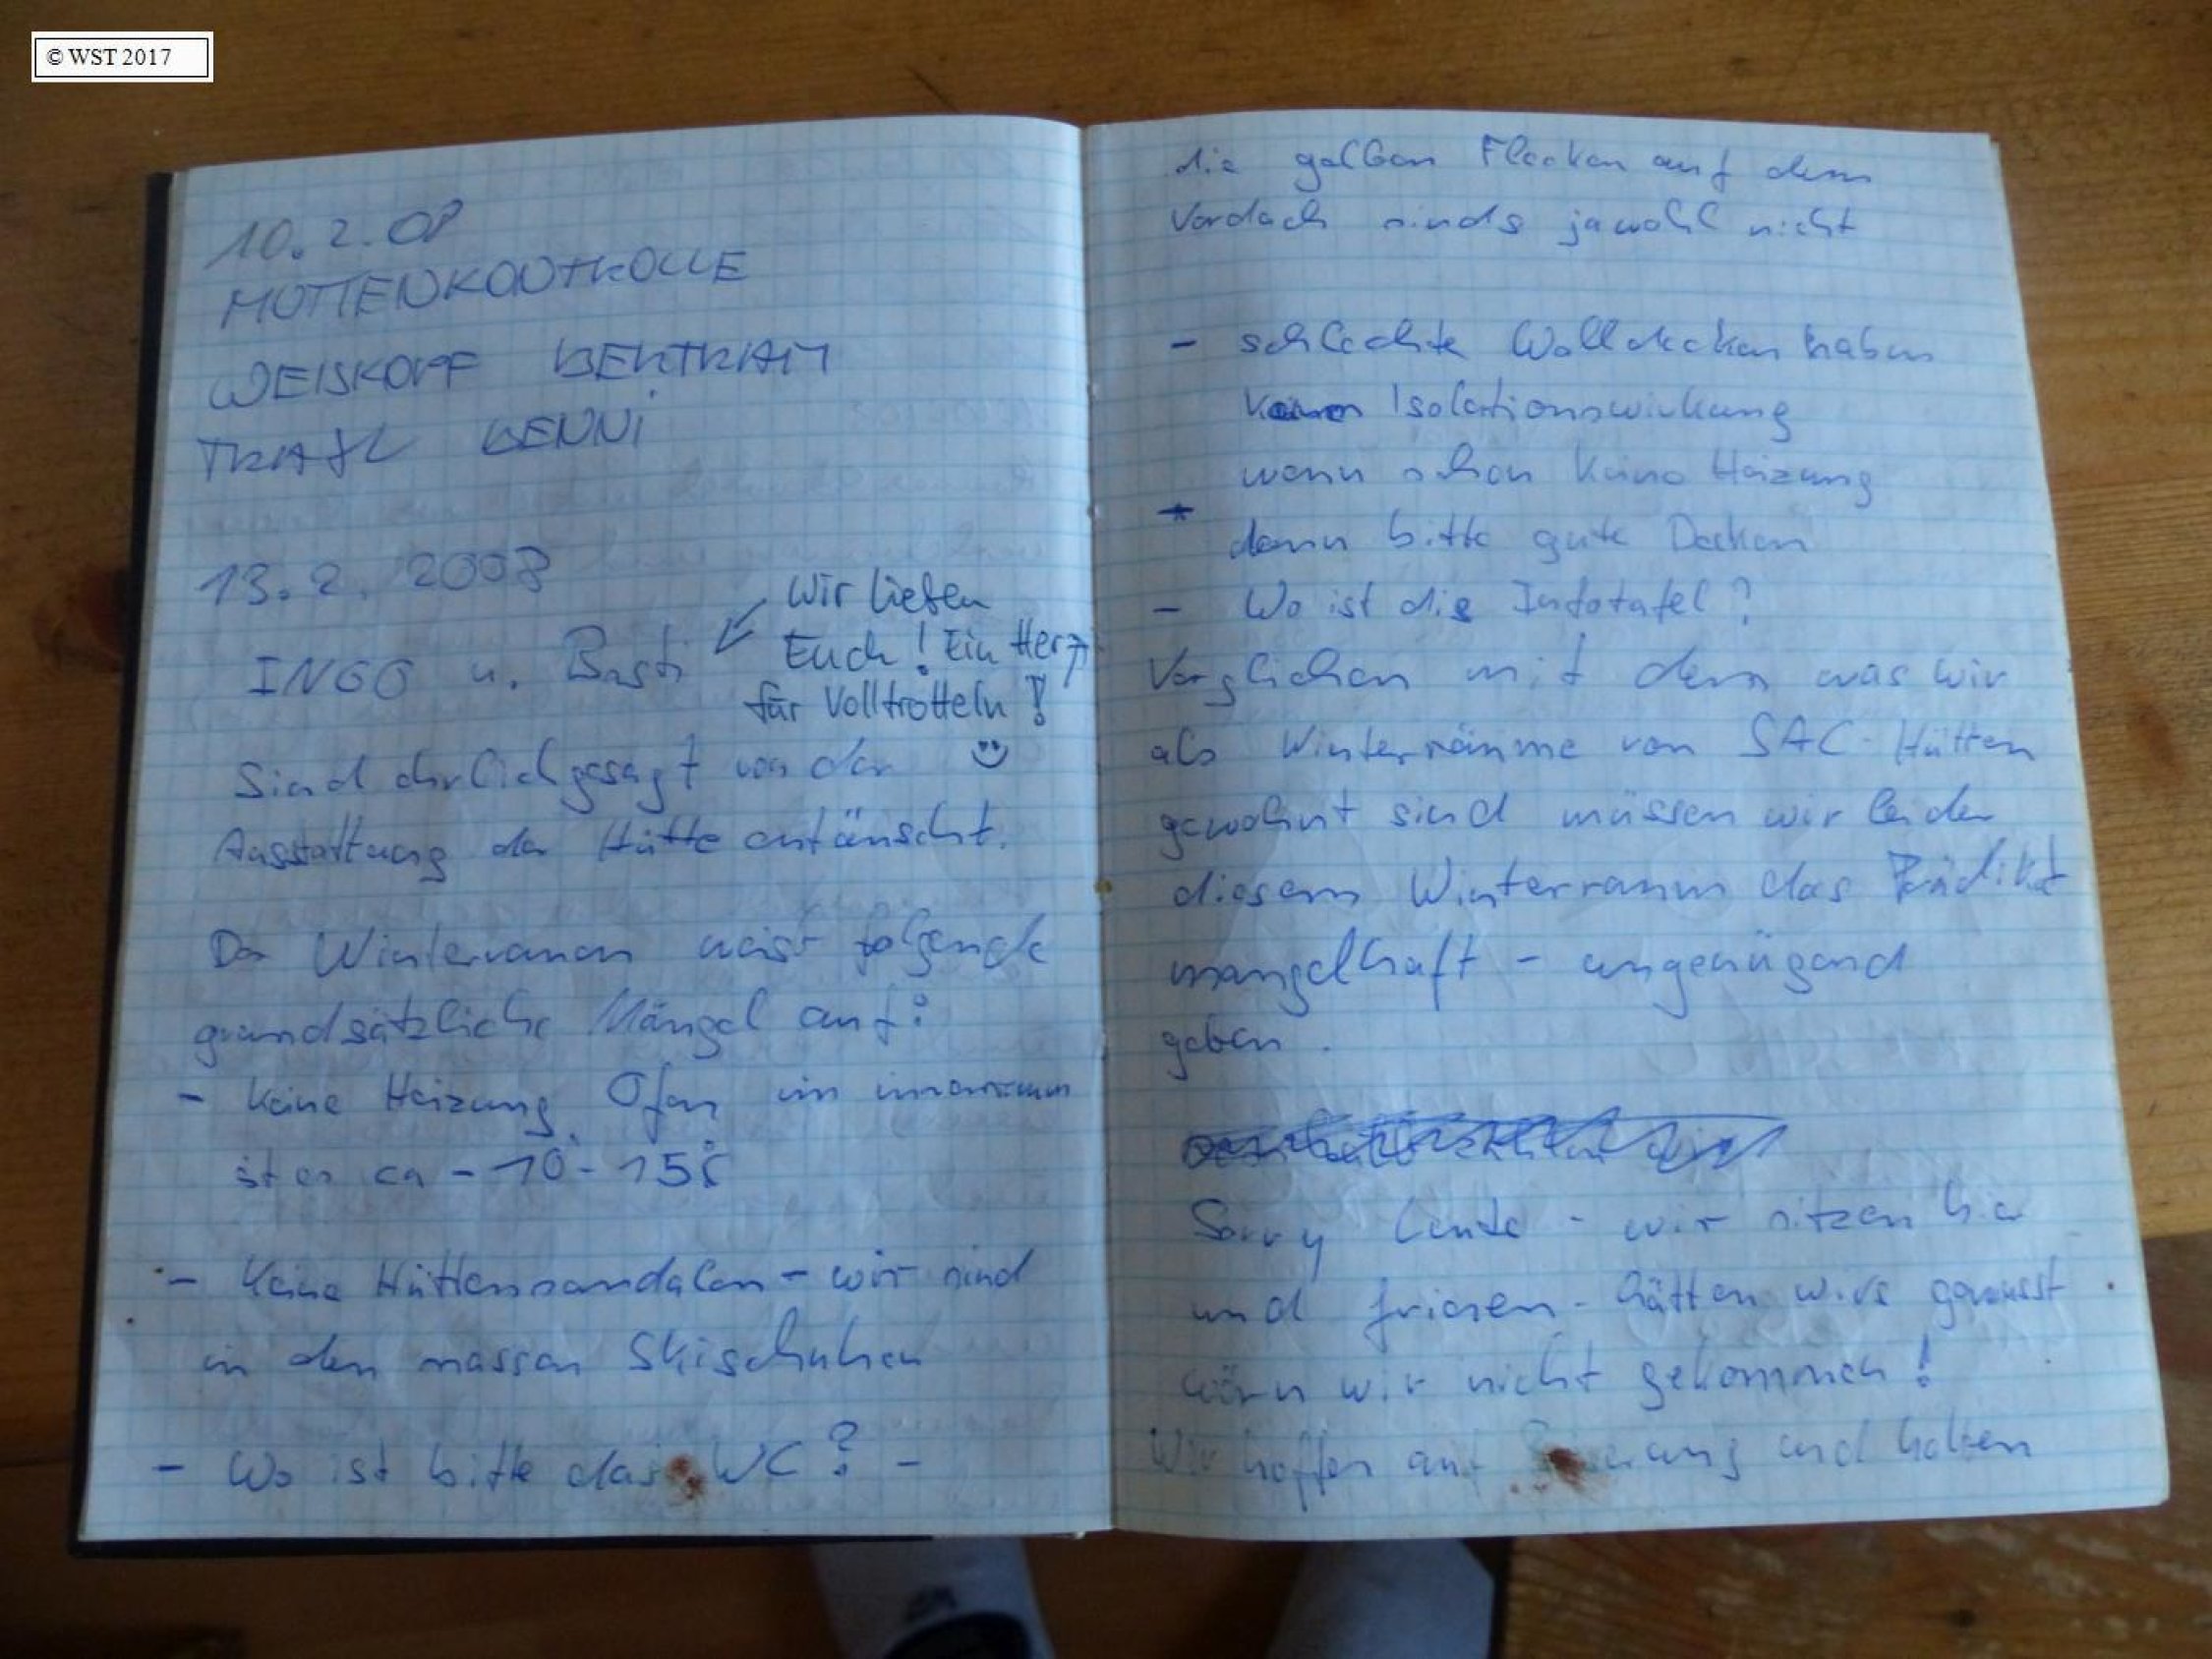 © WST 2017
10.2.08
HÜTTENKONTROLLE
WEISKOPF BERTRAM
TRAXL BENNI
13.2.2008
INGO u. Basti
Wir lieben
Euch! Ein Herz
für Volltrotteln!
Sind ehrlich gesagt von der
Ausstattung der Hütte entäuscht.
Der Winterraum weist folgende
grundsätzliche Mängel auf:
- Keine Heizung, Ofen im innenraum
ist es ca -10 - 15°
- Keine Hüttensandalen - wir sind
in den nassen Skischuhen
- Wo ist bitte das WC? -
die gelben Flecken auf dem
Vordach sinds jawohl nicht
- schlechte Wolldecken haben
keinen Isolationswirkung
wenn schon keine Heizung
dann bitte gute Decken
- Wo ist die Infotafel?
Verglichen mit dem was wir
als Winterräume von SAC-Hütten
gewohnt sind müssen wir leider
diesem Winterraum das Prädikat
mangelhaft - ungenügend
geben.
Sorry Leute - wir sitzen hier
und frieren - hätten wirs gewusst
wärn wir nicht gekommen!
Wir hoffen auf und halten